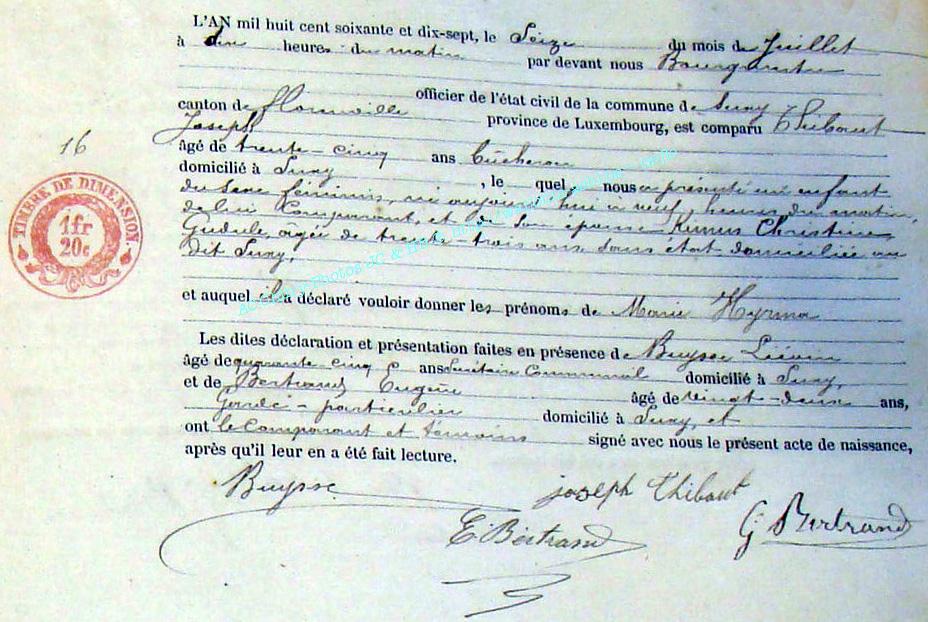 L'AN mil huit cent soixante et dix-sept, le Seize du mois de Juillet
à dix heures du matin par devant nous Bourgmestre
officier de l'état civil de la commune de Suxy
canton de Florenville province de Luxembourg, est comparu Thibaut
Joseph
âgé de trente-cinq ans bûcheron
domicilié à Suxy, lequel nous a présenté un enfant
du sexe féminin, né aujourd'hui à neuf heures du matin,
de lui Comparant, et de Son épouse Christine
Gudule, agée de trente-trois ans, sans état, domiciliée au
dit Suxy,
et auquel il a déclaré vouloir donner les prénoms de Marie Hyrma
Les dites déclaration et présentation faites en présence de Buysse
âgé de quarante cinq ans Secrétaire Communal domicilié à Suxy,
et de Bertrand Eugène âgé de vingt-deux ans,
Garde-particulier domicilié à Suxy, et
ont le Comparant et témoins signé avec nous le présent acte de naissance,
après qu'il leur en a été fait lecture.
Buysse joseph thibaut
E Bertrand G Bertrand
16
TIMBRE DE DIMENSION.
1fr
20c